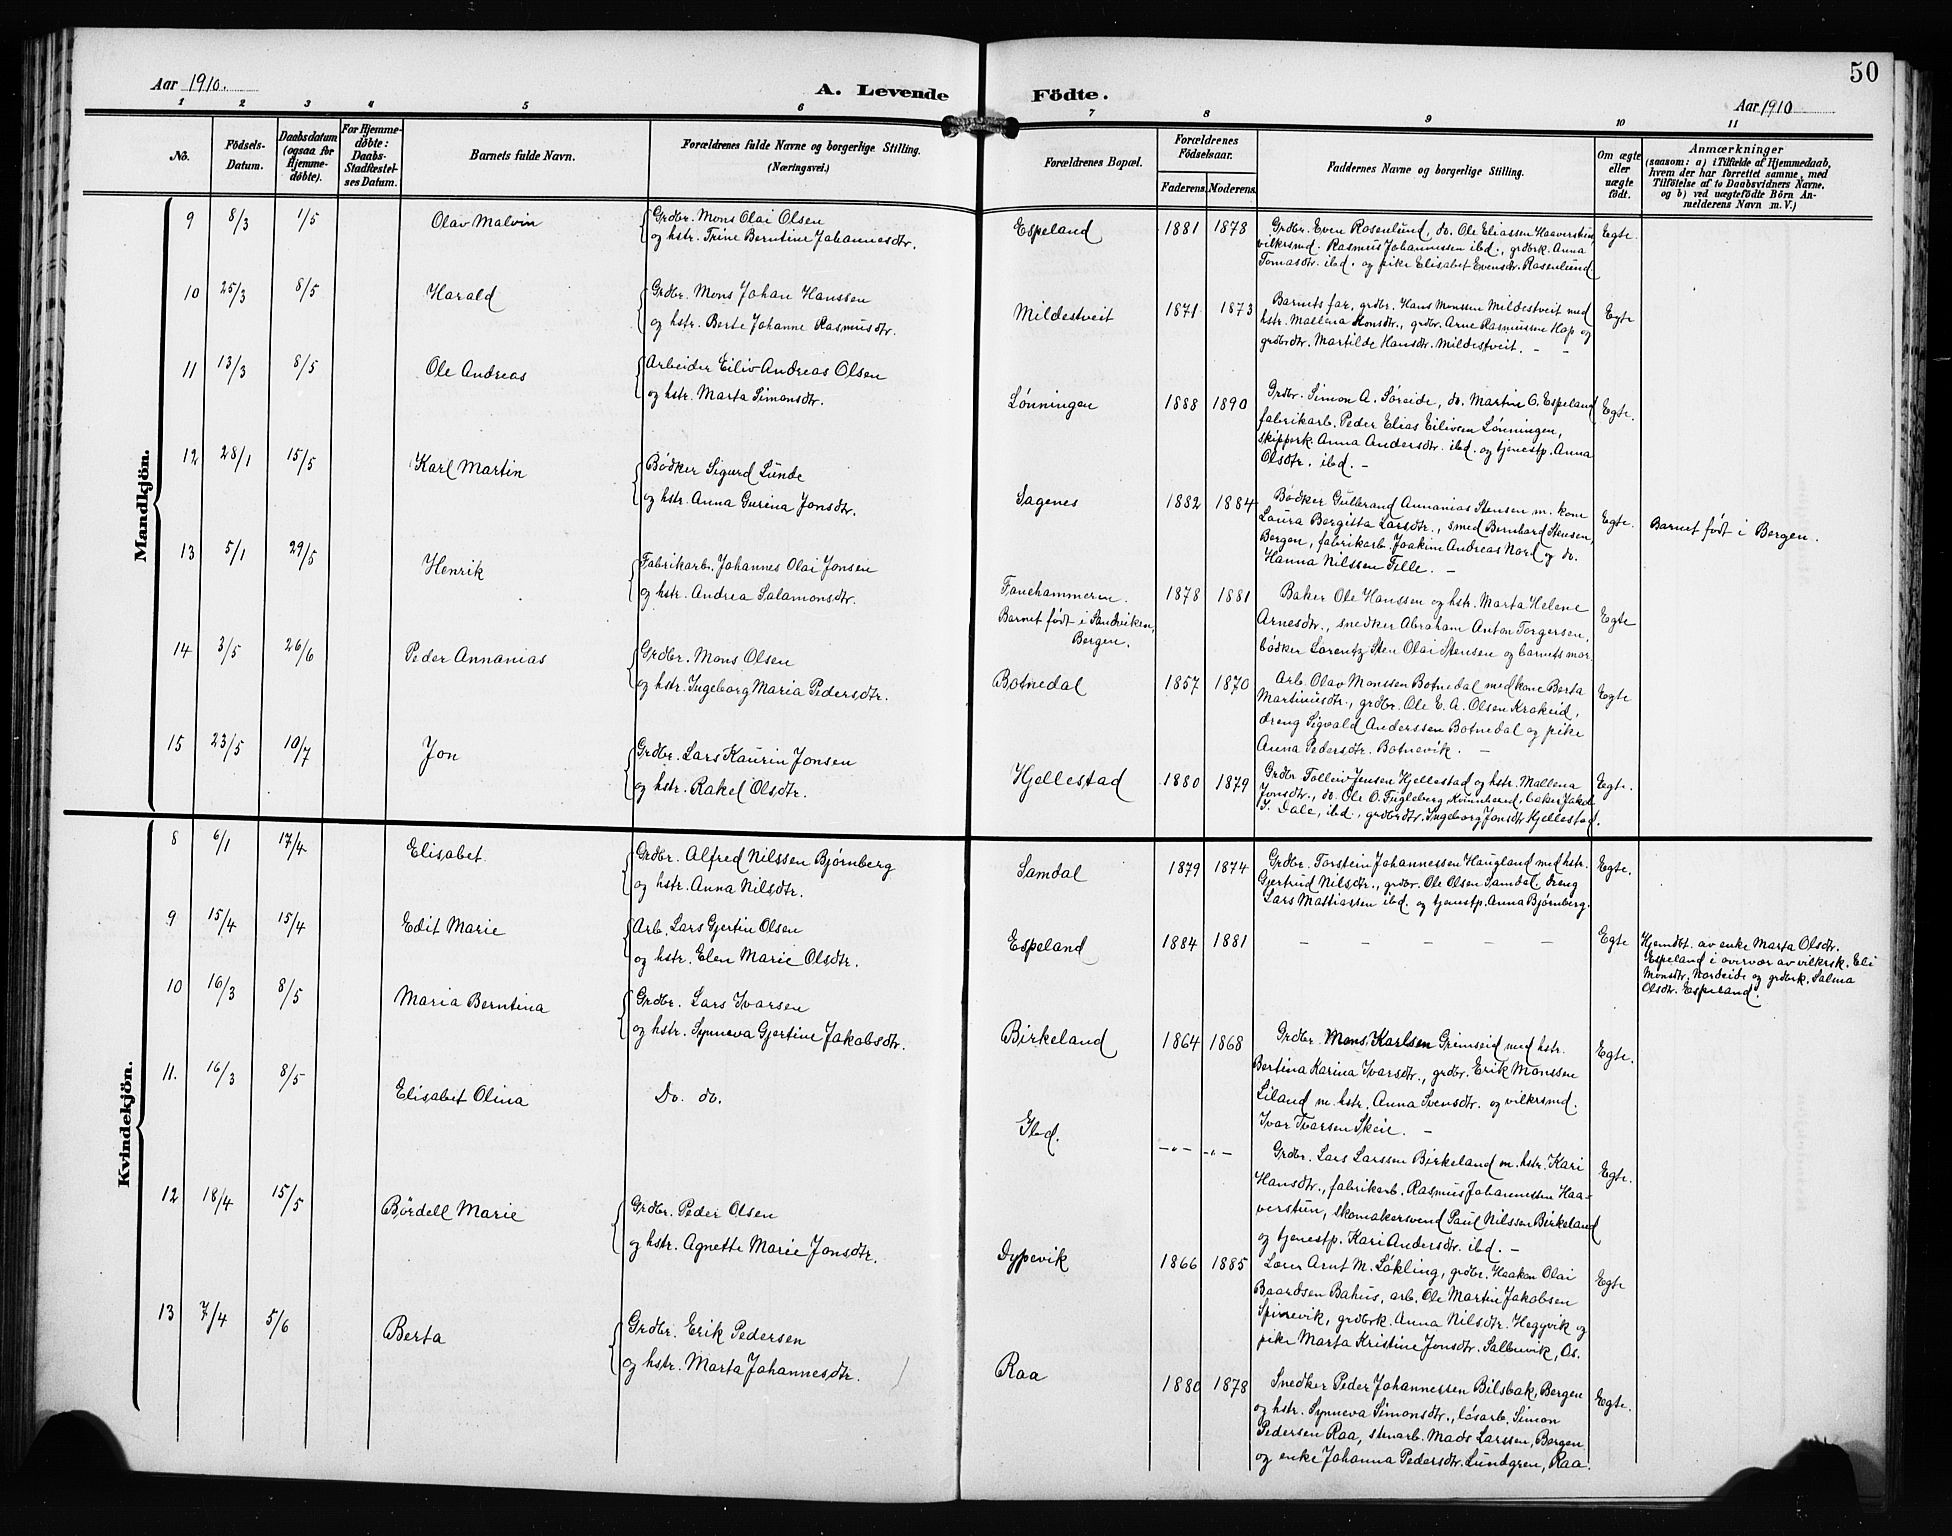 50
Aar 1910.
A. Levende Födte.
Aar 1910
1 2 3 4 5 6 7 8 9 10 11
No.
Födsels-Datum.
Daabsdatum (ogsaa for Hjemme-döbte).
For Hjemme-döbte: Daabs-Stadfæstel-ses Datum.
Barnets fulde Navn.
Forældrenes fulde Navne og borgerlige Stilling.
(Næringsvei.)
Forældrenes Bopæl.
Forældrenes Födselsaar.
Faderens. Moderens.
Faddernes Navne og borgerlige Stilling.
Om ægte eller uægte födt.
Anmærkninger
(saasom: a) i Tilfælde af Hjemmedaab,
hvem der har forrettet samme, med
Tilföielse af to Daabsvidners Navne,
og b) ved uægtefödte Börn An-
melderens Navn m. V.)
Mandkjön.
9 8/3 1/5 Olav Malvin
Grdbr. Mons Olai Olsen
og hstr. Trine Berntine Johannesdtr.
Espeland 1881 1878
Grdbr. Even Rosenlund, do. Ole Eliassen Haaverstun,
vilkrsmd. Rasmus Johannesen ibd., grdbrk. Anna
Tomasdtr. ibd. og pike Elisabet Evensdtr. Rosenlund
Egte.
10 25/3 8/5 Harald
Grdbr. Mons Johan Hanssen
og hstr. Berte Johanne Rasmusdtr.
Mildestveit 1871 1873
Barnets far, grdbr. Hans Monsen Mildestveit med
hstr. Mallena Monsdtr., grdbr. Arne Rasmussen Hop og
grdbrdtr. Martilde Hansdtr. Mildestveit. – –
Egte
11 13/3 8/5 Ole Andreas
Arbeider Eiliv Andreas Olsen
og hstr. Marta Simonsdtr.
Lønningen 1888 1890
Grdbr. Simon A. Søreide, do. Martin O. Espeland
fabrikarb. Peder Elias Eilivsen Lønningen,
skipperk. Anna Andersdtr. ibd. og tjenestp. Anna
Olsdtr. ibd. –
Egte.
12 28/1 15/5 Karl Martin
Bødker Sigurd Lunde
og hstr. Anna Gurina Jonsdtr.
Sagenes 1882 1884
Bødker Gulbrand Annanias Stensen m. kone
Laura Bergitta Larsdtr., smed Bernhard Stensen,
Bergen, fabrikarb. Joakim Andreas Nord og do.
Hanna Nilssen Telle. –
Egte.
Barnet født i Bergen.
13 5/1 29/5 Henrik
Fabrikarb. Johannes Olai Jonsen
og hstr. Andrea Salamonsdtr.
Fanehammeren.
Barnet født i Sandviken,
Bergen.
1878 1881
Baker Ole Hanssen og hstr. Marta Helene
Arnesdtr., snedker Abraham Anton Torgersen,
bødker Lorentz Sten Olai Stensen og barnets mor
Egte
14 3/5 26/6 Peder Annanias
Grdbr. Mons Olsen
og hstr. Ingeborg Maria Pedersdtr.
Botnedal 1857 1870
Arb. Olav Monssen Botnedal med kone Berta
Martinusdtr., grdbr. Ole E. A. Olsen Krokeid,
dreng Sigvald Anderssen Botnedal og pike
Anna Pedersdtr. Botnevik. –
Egte
15 23/5 10/7 Jon
Grdbr. Lars Kaurin Jonsen
og hstr. Rakel Olsdtr.
Hjellestad 1880 1879
Grdbr. Tolleiv Jensen Hjellestad og hstr. Mallena
Jonsdtr., do. Ole O. Fugleberg Kvinnherred, baker Jakob
I. Dale, ibd., grdbrdtr. Ingeborg Jonsdtr. Hjellestad.
Egte.
Kvindekjön.
8 6/1 17/4 Elisabet.
Grdbr. Alfred Nilssen Bjørnberg
og hstr. Anna Nilsdtr.
Samdal 1879 1874
Grdbr. Torstein Johannessen Haugland med hstr.
Gjertrud Nilsdtr., grdbr. Ole Olsen Samdal, dreng
Lars Mattiassen ibd. og tjenestp. Anna Bjørnberg.
Egte.
9 15/4 15/4 Edit Marie
Arb. Lars Gjertin Olsen
og hstr. Elen Marie Olsdtr.
Espeland 1884 1881
– – – – – –
Egte
Hjemdøbt. av enke Marta Olsdtr.
Espeland i overvær av vilkrsk. Eli
Monsdtr. Nordeide og grdbrk. Salma
Olsdtr. Espeland.
10 16/3 8/5 Maria Berntina
Grdbr. Lars Ivarsen
og hstr. Synneva Gjertine Jakobsdtr.
Birkeland 1864 1868
Grdbr. Mons Karlsen Grimseid med hstr.
Bertina Karina Ivarsdtr., grdbr. Erik Monssen
Liland m. hstr. Anna Svensdtr. og vilkrsmd.
Ivar Ivarsen Skeie. –
Egte.
11. 16/3 8/5 Elisabet Olina
Do. do.
Ibd. –"– –"–
Grdbr. Lars Larssen Birkeland m. hstr. Kari
Hansdtr., fabrikarb. Rasmus Johannessen Haa-
verstun, skomakersvend Paul Nilssen Birkeland
og tjenestp. Kari Andersdtr. ibd. –
Egte.
12 18/4 15/5 Børdell Marie
Grdbr. Peder Olsen
og hstr. Agnette Marie Jonsdtr.
Dypevik 1866 1885
Lærer Arnt M. Løkling, grdbr. Haakon Olai
Baardsen Bahus, arb. Ole Martin Jakobsen
Spirrevik, grdbrk. Anna Nilsdtr. Heggvik og
pike Marta Kristine Jonsdtr. Salbuvik, Os.
Egte
13 7/4 5/6 Berta
Grdbr. Erik Pedersen
og hstr. Marta Johannesdtr.
Raa 1880 1878
Snedker Peder Johannessen Bilsbak, Bergen
og hstr. Synneva Simonsdtr., løsarb. Simon
Pedersen Raa, stenarb. Mads Larssen, Bergen
og enke Johanna Pedersdtr. Lundgren, Raa.
Egte.